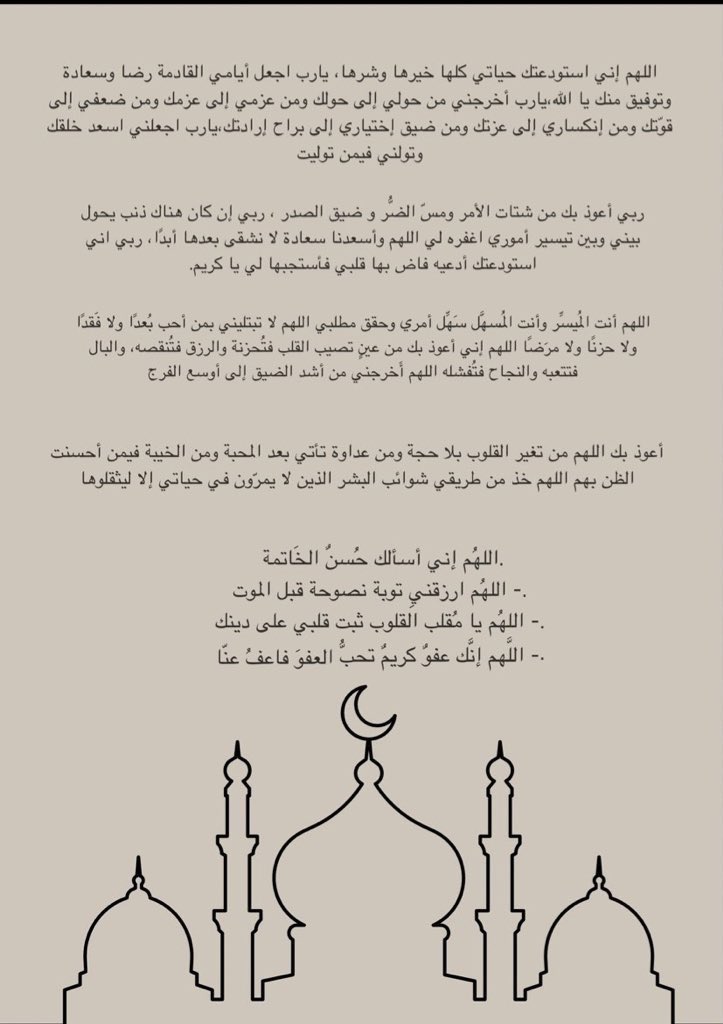 اللهم إني استودعتك حياتي كلها خيرها وشرها، يارب اجعل أيامي القادمة رضا وسعادة
وتوفيق منك يا الله،يارب أخرجني من حولي إلى حولك ومن عزمي إلى عزمك ومن ضعفي إلى
قوّتك ومن إنكساري إلى عزتك ومن ضيق إختياري إلى براح إرادتك،يارب اجعلني اسعد خلقك
وتولني فيمن توليت
ربي أعوذ بك من شتات الأمر ومسّ الضُّر و ضيق الصدر ، ربي إن كان هناك ذنب يحول
بيني وبين تيسير أموري اغفره لي اللهم وأسعدنا سعادة لا نشقى بعدها أبدًا، ربي اني
استودعتك أدعيه فاض بها قلبي فأستجبها لي يا كريم.
اللهم أنت المُيسِّر وأنت المُسهَّل سَهِّل أمري وحقق مطلبي اللهم لا تبتليني بمن أحب بُعدًا ولا فَقدًا
ولا حزنًا ولا مرَضًا اللهم إني أعوذ بك من عينٍ تصيب القلب فتُحزنة والرزق فتُنقصه، والبال
فتتعبه والنجاح فتُفشله اللهم أَخرجني من أشد الضيق إلى أوسع الفرج
أعوذ بك اللهم من تغير القلوب بلا حجة ومن عداوة تأتي بعد المحبة ومن الخيبة فيمن أحسنت
الظن بهم اللهم خذ من طريقي شوائب البشر الذين لا يمرّون في حياتي إلا ليثقلوها
.اللهُم إني أسألك حُسنٌ الخَاتمة
.- اللهُم ارزقني توبة نصوحة قبل الموت
.- اللهُم يا مُقلب القلوب ثبت قلبي على دينك
.- اللَّهم إنَّك عفوٌ كريمٌ تحبُّ العفوَ فاعفُ عنّا